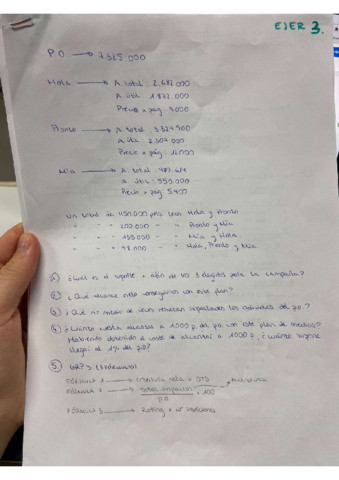 EJER 3.
P.O → 7.525.000
Hola → A. total: 2.682.000
A. útil: 1.872.000
Precio x pág: 9.000
Pronto → A. total: 3.324.900
A. útil: 2.307.000
Precio x pág: 12.000
Mía → A. total:
A. útil: 959.000
Precio x pág: 5.400
Un total de 450.000 pers leen Hola y Pronto
" " " 200.000 " Pronto y Mía
" " " 155.000 " Mía y Hola.
" " " 98.000 " Hola, Pronto y Mía
① ¿Cual es el soporte + afín de los 3 elegidos para la campaña?
② ¿Qué alcance neto conseguimos con este plan?
③ ¿Qué nº medio de veces resultan impactados los individuos del p.o.?
④ ¿Cuánto cuesta alcanzar a 1000 p. del p.o. con este plan de medios?
Habiendo obtenido el coste de alcanzar a 1000 p. ¿cuánto supone
llegar al 1% del p.o?
⑤ GRP's (3 fórmulas)
FÓRMULA 1 → cobertura neta x OTS
FÓRMULA 2 → total impactos / p.o x 100
FÓRMULA 3 → Rating x nº inserciones